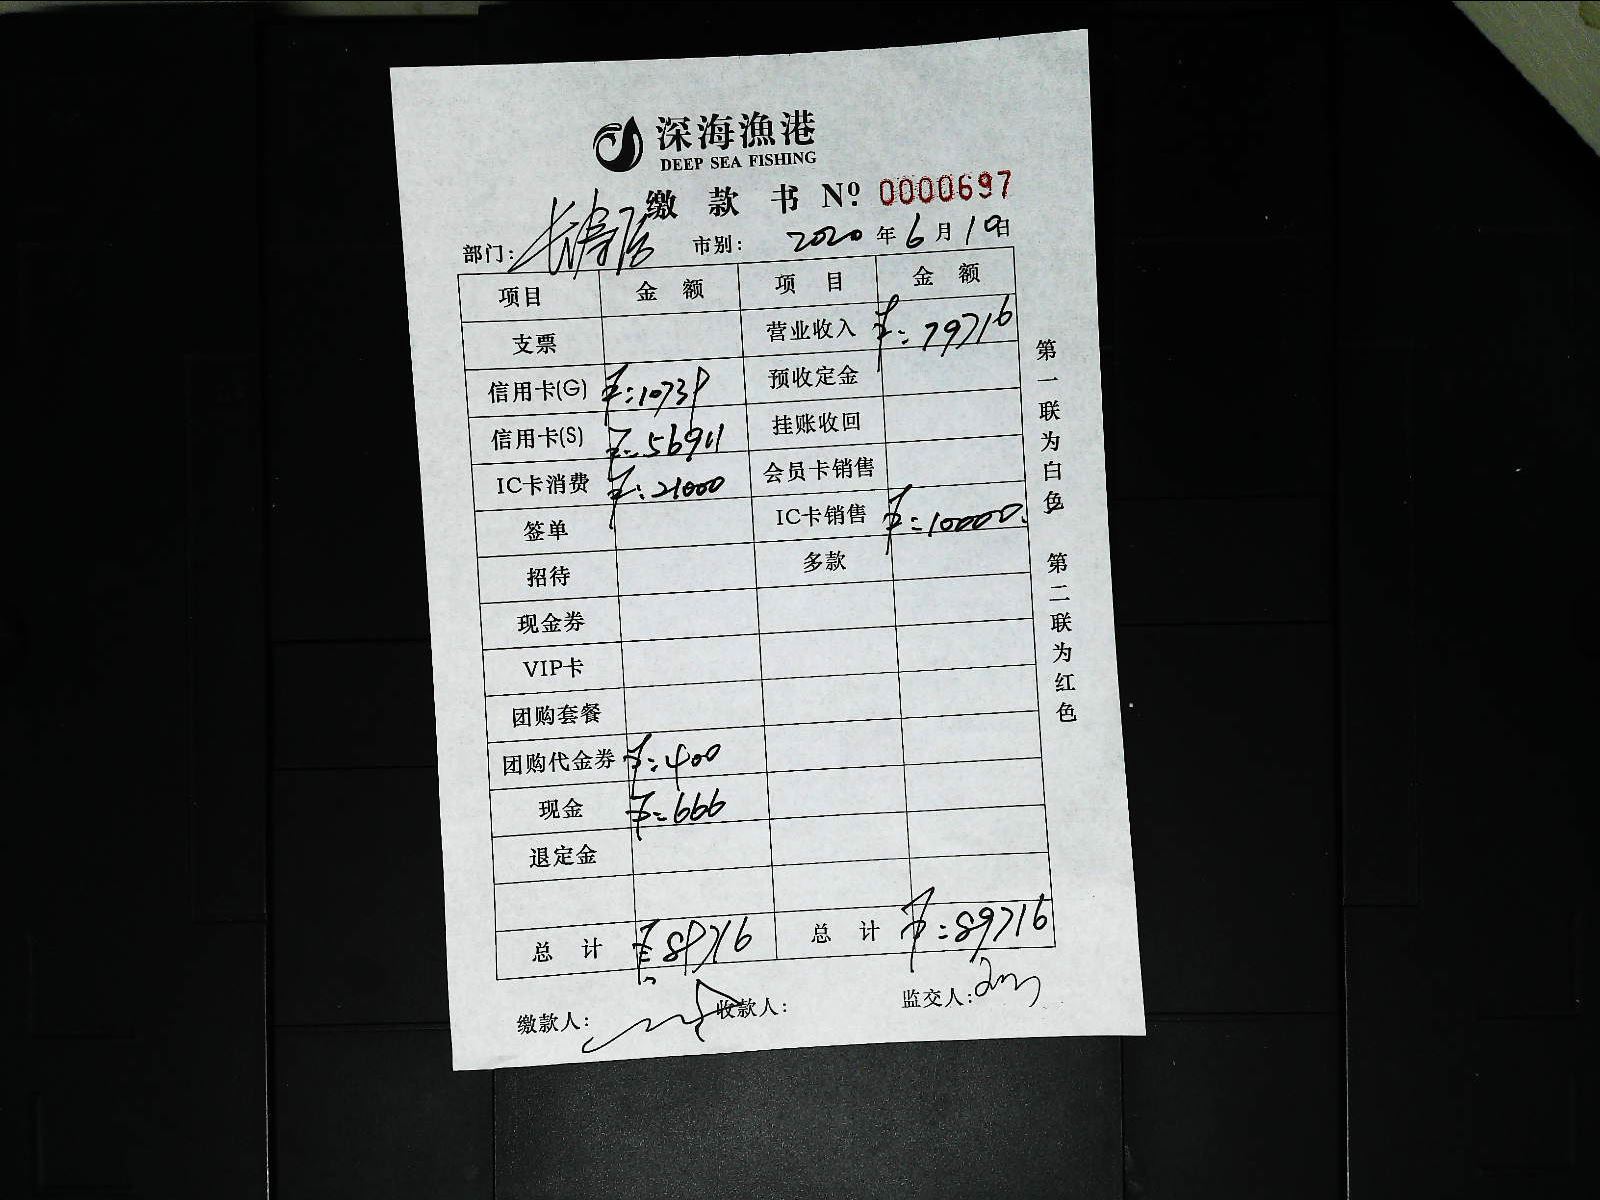 深海漁港
DEEP SEA FISHING
缴款书 Nº 0000697
部门: 长寿店 市别: 2020年6月10日
项目 金额 项目 金额
支票 营业收入 ¥:79716
信用卡(G) ¥:10739 预收定金
信用卡(S) ¥:56911 挂账收回
IC卡消费 ¥:21000 会员卡销售
签单 IC卡销售 ¥:10000.
招待 多款
现金券
VIP卡
团购套餐
团购代金券 ¥:400
现金 ¥:666
退定金
总计 ¥:89716 总计 ¥:89716
缴款人: 收款人: 监交人:
第一联为白色 第二联为红色